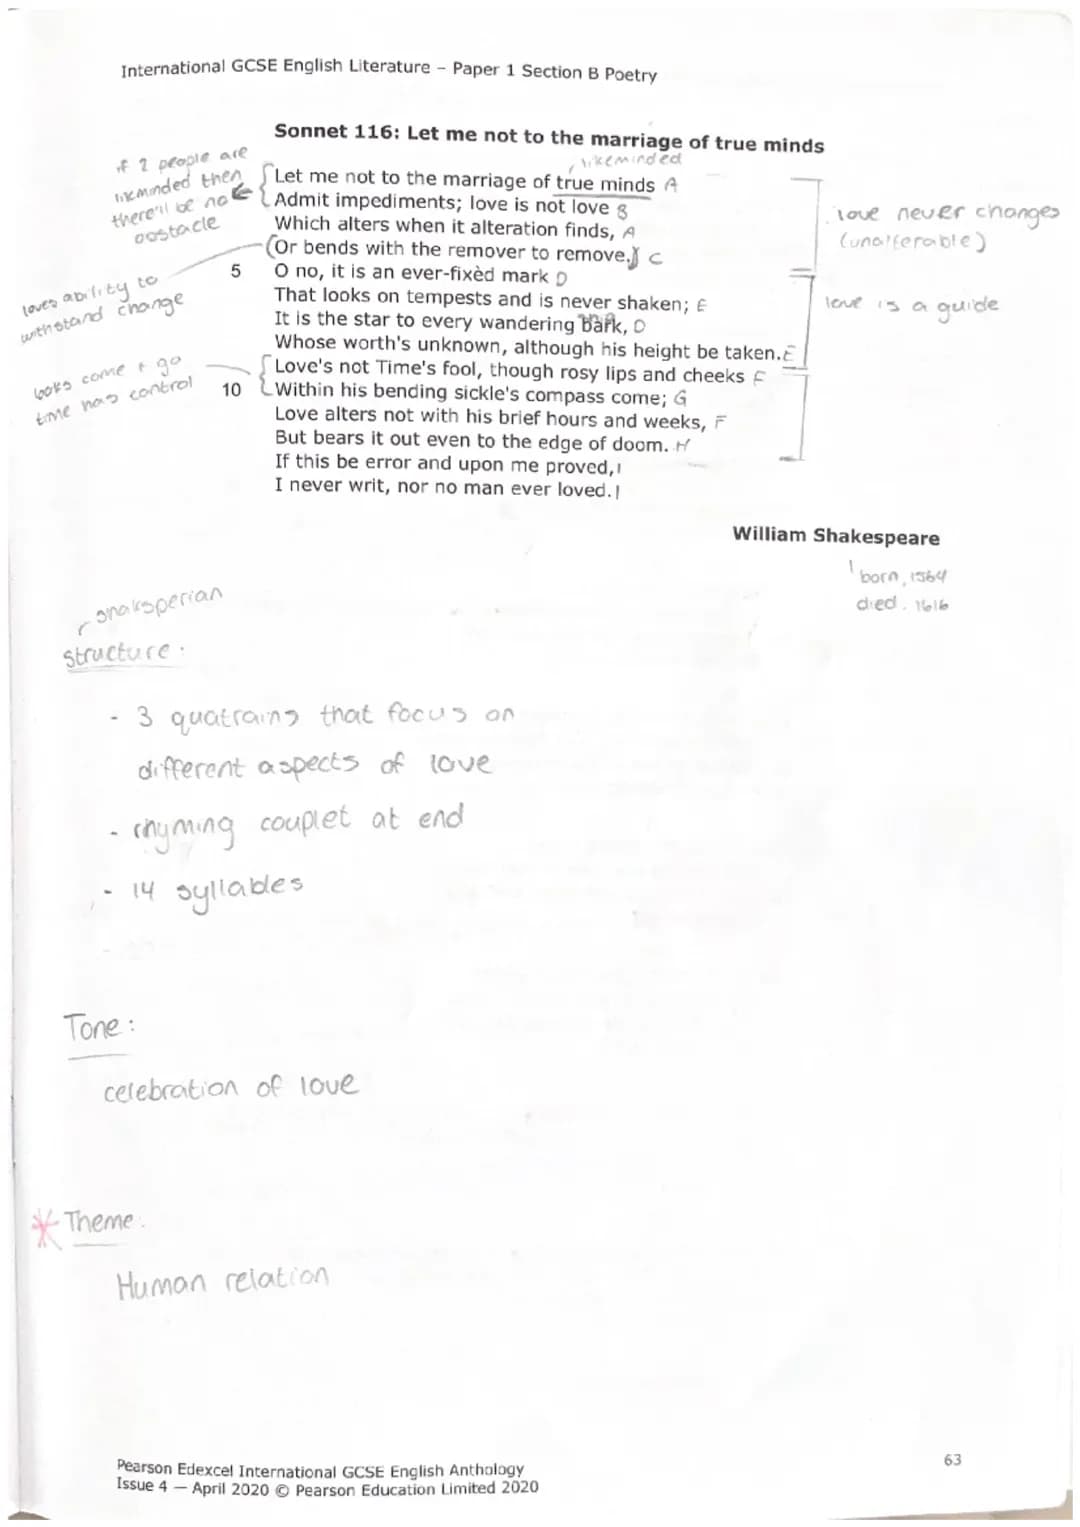 International GCSE English Literature – Paper 1 Section B Poetry
Sonnet 116: Let me not to the marriage of true minds
likeminded
if 2 people are
likeminded then
there'll be no
obstacle
Let me not to the marriage of true minds A
Admit impediments; love is not love B
Which alters when it alteration finds, A
Or bends with the remover to remove. C
love never changes
(unalterable)
loves ability to
withstand change
5 O no, it is an ever-fixèd mark D
That looks on tempests and is never shaken; E
It is the star to every wandering bark, D
Whose worth's unknown, although his height be taken. E
love is a guide
looks come + go
time has control
Love's not Time's fool, though rosy lips and cheeks F
10 Within his bending sickle's compass come; G
Love alters not with his brief hours and weeks, F
But bears it out even to the edge of doom. H
If this be error and upon me proved, I
I never writ, nor no man ever loved. I
William Shakespeare
born, 1564
died. 1616
shaksperian
structure:
- 3 quatrains that focus on
different aspects of love
- rhyming couplet at end
- 14 syllables
Tone:
celebration of love
Theme.
Human relation
Pearson Edexcel International GCSE English Anthology
Issue 4 — April 2020 © Pearson Education Limited 2020
63